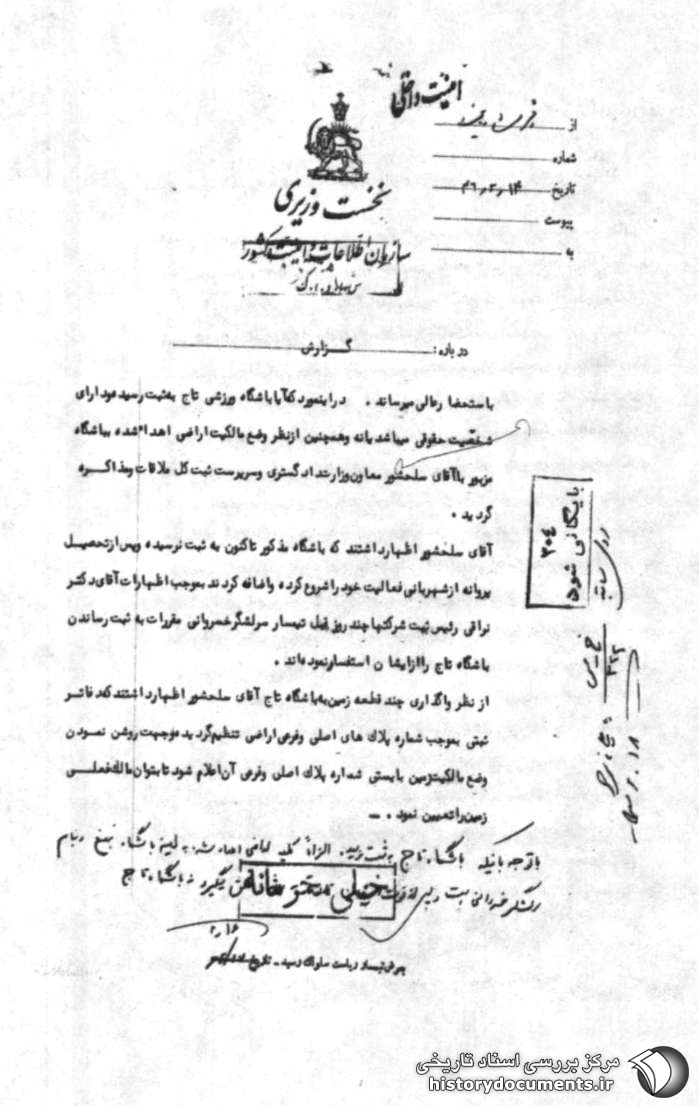 امنیت داخلی
از
شماره
تاریخ ۴۶٫۳٫۱۴
پیوست
به
نخست وزیری
سازمان اطلاعات و امنیت کشور
س.ا.و.ا.ک
در باره : گــزارش
باستحضار عالی میرساند . در اینمورد که آیا باشگاه ورزشی تاج به ثبت رسیده و دارای
شخصیت حقوقی میباشد یا نه و همچنین از نظر وضع مالکیت اراضی اهداء شده بباشگاه
مزبور با آقای سلحشور معاون وزارت دادگستری و سرپرست ثبت کل ملاقات و مذاکــره
گردید .
آقای سلحشور اظهار داشتند که باشگاه مذکور تاکنون به ثبت نرسیده و پس از تحصیــل
پروانه از شهربانی فعالیت خود را شروع کرده و اضافه کردند بموجب اظهارات آقای دکتر
نراقی رئیس ثبت شرکتها چند روز قبل تیمسار سرلشگر خسروانی مقررات به ثبت رساندن
باشگاه تاج را از ایشان استفسار نموده‌اند .
از نظر واگذاری چند قطعه زمین به باشگاه تاج آقای سلحشور اظهار داشتند که دفاتــر
ثبتی بموجب شماره پلاک های اصلی و فرعی اراضی تنظیم گردیده و جهت روشن نمــودن
وضع مالکیت زمین بایستی شماره پلاک اصلی و فرعی آن اعلام شود تا بتوان مالک فعلــی
زمین را تعیین نمود . ــ
با توجه باینکه باشگاه تاج به ثبت نرسیده
خیلی محرمانه
باشگاه تاج
۱۶
بعرض تیمسار ریاست ساواک رسید ـ تاریخ
بایگانی شود
۲۰۴
۳۲۲
مرکز بررسی اسناد تاریخی
historydocuments.ir